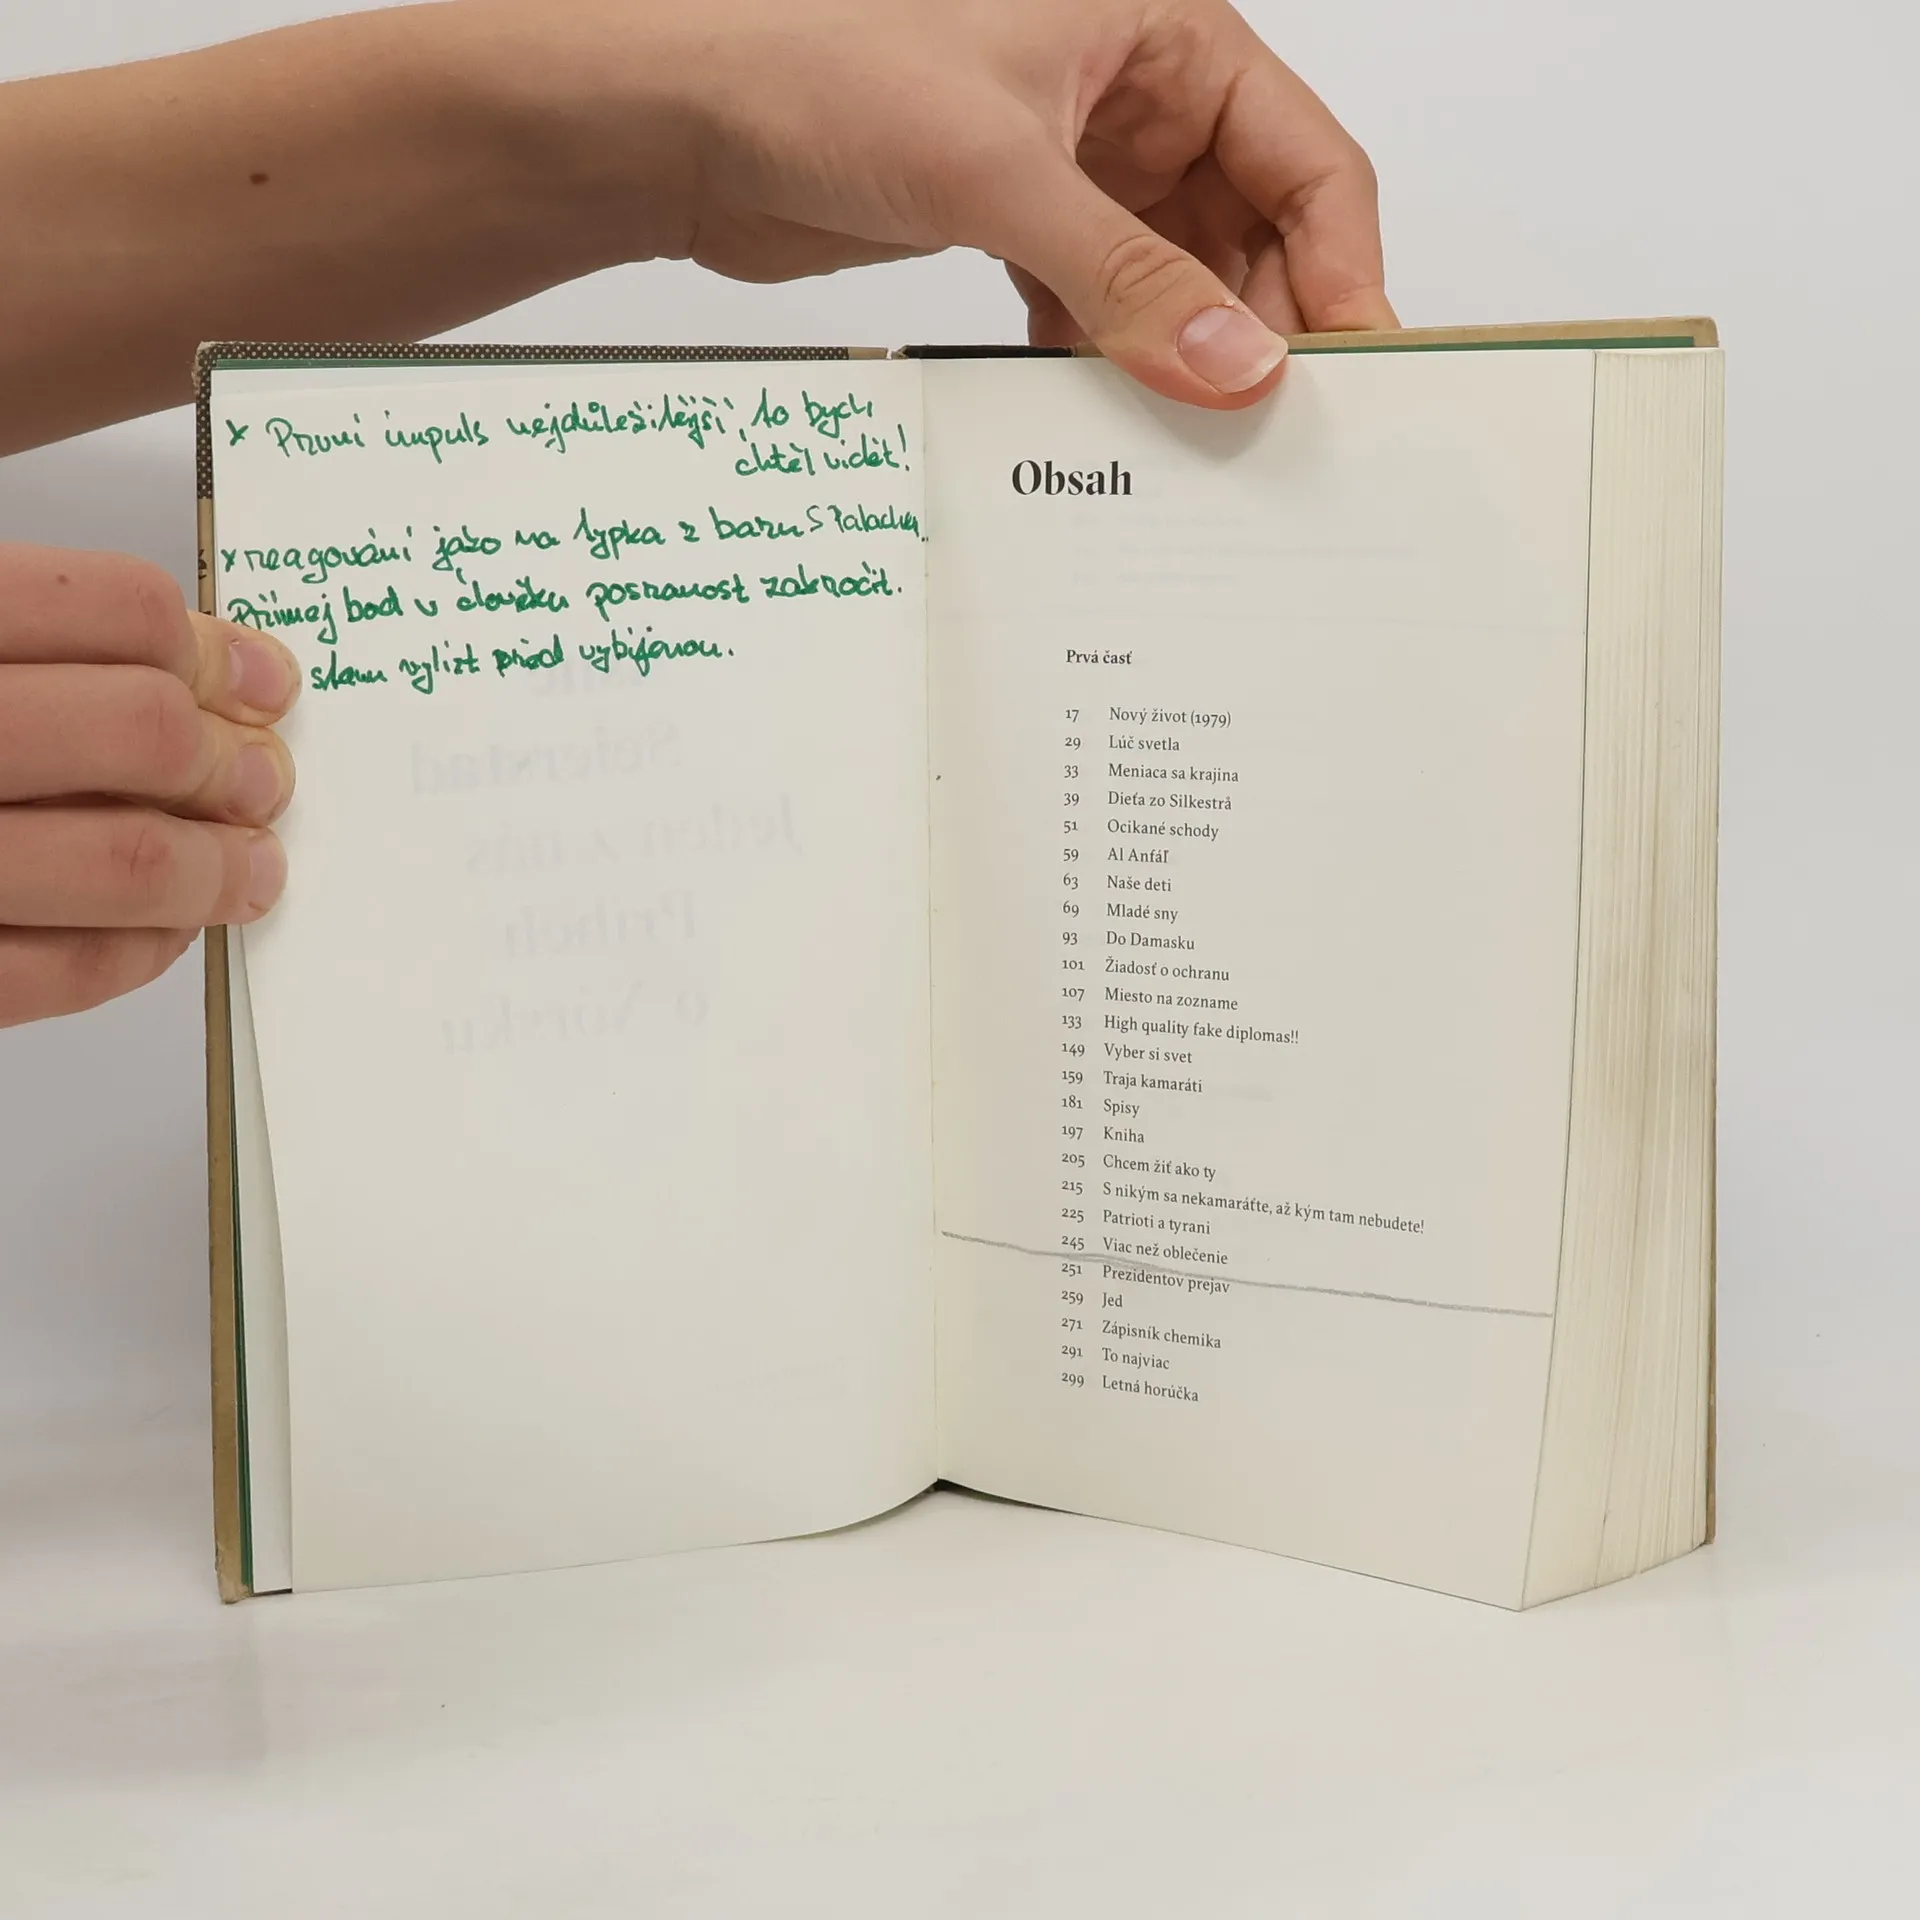 x První impuls nejdůležitější, to bych
chtěl vidět!
x reagování jako na typka z baru S
bod v člověku posranost zakročit.
před vybíjenou.
Obsah
Prvá časť
17 Nový život (1979)
29 Lúč svetla
33 Meniaca sa krajina
39 Dieťa zo Silkestrå
51 Ocikané schody
59 Al Anfáľ
63 Naše deti
69 Mladé sny
93 Do Damasku
101 Žiadosť o ochranu
107 Miesto na zozname
133 High quality fake diplomas!!
149 Vyber si svet
159 Traja kamaráti
181 Spisy
197 Kniha
205 Chcem žiť ako ty
215 S nikým sa nekamaráťte, až kým tam nebudete!
225 Patrioti a tyrani
245 Viac než oblečenie
251 Prezidentov prejav
259 Jed
271 Zápisník chemika
291 To najviac
299 Letná horúčka